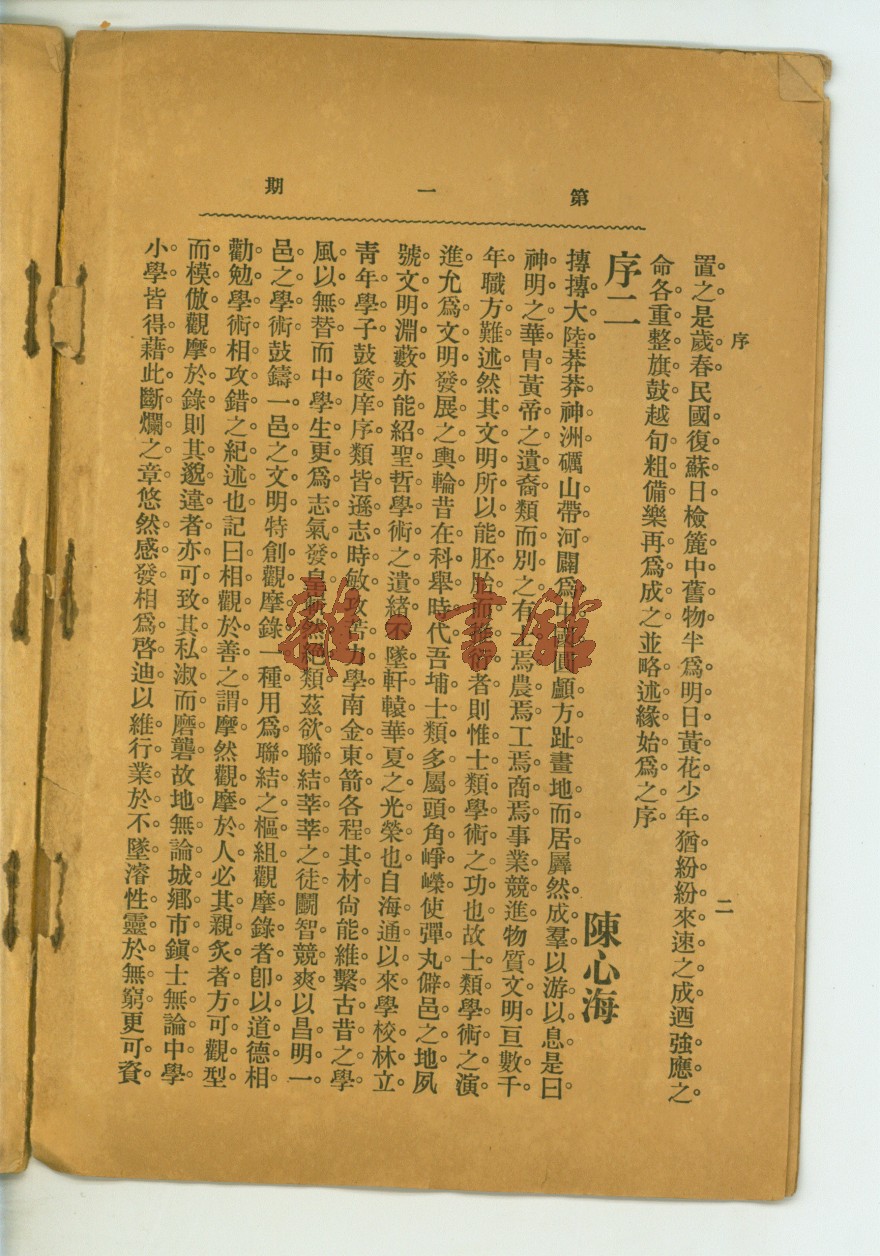 第一期
序
二
置之是歲春民國復蘇日檢簏中舊物半爲明日黃花少年猶紛紛來速之成迺強應之
命各重整旗鼓越旬粗備樂再爲成之並略述緣始爲之序
序二
陳心海
摶摶大陸莽莽神洲礪山帶河闢爲中國圓顱方趾畫地而居羼然成羣以游以息是曰
神明之華胄黃帝之遺裔類而別之有士焉農焉工焉商焉事業競進物質文明亘數千
年職方難述然其文明所以能胚胎而者則惟士類學術之功也故士類學術之演
進允爲文明發展之輿輪昔在科舉時代吾埔士類多屬頭角崢嶸使彈丸僻邑之地夙
號文明淵藪亦能紹聖哲學術之遺緒不墜軒轅華夏之光榮也自海通以來學校林立
靑年學子鼓篋庠序類皆遜志時敏攻苦力學南金東箭各程其材尙能維繫古昔之學
風以無替而中學生更爲志氣發皇然絕類茲欲聯結莘莘之徒鬭智競爽以昌明一
邑之學術鼓鑄一邑之文明特創觀摩錄一種用爲聯結之樞組觀摩錄者卽以道德相
勸勉學術相攻錯之紀述也記曰相觀於善之謂摩然觀摩於人必其親炙者方可觀型
而模倣觀摩於錄則其邈違者亦可致其私淑而磨礱故地無論城鄕市鎭士無論中學
小學皆得藉此斷爛之章悠然感發相爲啓迪以維行業於不墜濬性靈於無窮更可資
雜·書館